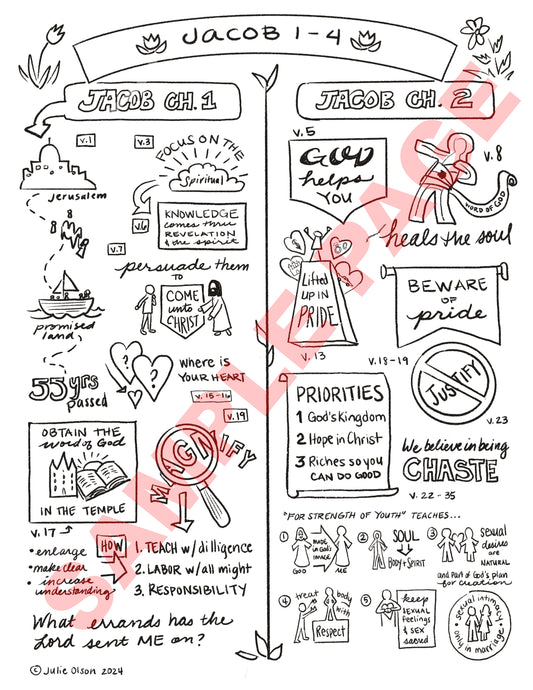 JACOB 1-4
JACOB CH. 1
v.1
Jerusalem
8
promised
land
55 yrs
passed
v.3
FOCUS ON THE
Spiritual
v.6
KNOWLEDGE
comes thru
REVELATION
& the spirit
v.7
persuade them
TO
COME
unto
CHRIST
? ?
where is
YOUR HEART
v. 15-16
OBTAIN THE
word of God
IN THE TEMPLE
v. 17
v.19
MAGNIFY
• enlarge
• make clear
• increase
understanding
HOW
1. TEACH w/ dilligence
2. LABOR w/ all might
3. RESPONSIBILITY
What errands has the
Lord sent ME on?
© Julie Olson 2024
JACOB CH. 2
v. 5
GOD
helps
YOU
v. 8
WORD OF GOD
heals the soul
Lifted
UP IN
PRIDE
v. 13
BEWARE
OF
pride
v. 18-19
PRIORITIES
1 God's Kingdom
2 Hope in Christ
3 Riches so you
CAN DO GOOD
JUSTIFY
v. 23
We believe in being
CHASTE
v. 22 - 35
"FOR STRENGTH OF YOUTH" TEACHES...
1
MADE
in God's
IMAGE
GOD
ME
2
SOUL
BODY + SPIRIT
3
sexual
desires
are
NATURAL
and Part of God's plan
for creation
4
treat body
with
Respect
5
keep
SEXUAL
feelings
& SEX
sacred
sexual intimacy
• only in marriage •
SAMPLE PAGE